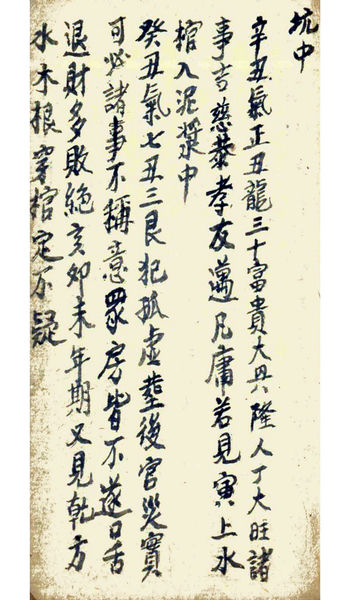 坑中
辛丑氣正丑龍三十富貴大興隆人丁大旺諸
事吉慈恭孝友邁凡庸若見寅上水
棺入泥漿中
癸丑氣七丑三艮犯孤虛塟後官災實
可必諸事不稱意眾房皆不遂口舌
退財多敗絕亥卯未年期又見乾方
水木根穿棺定不疑